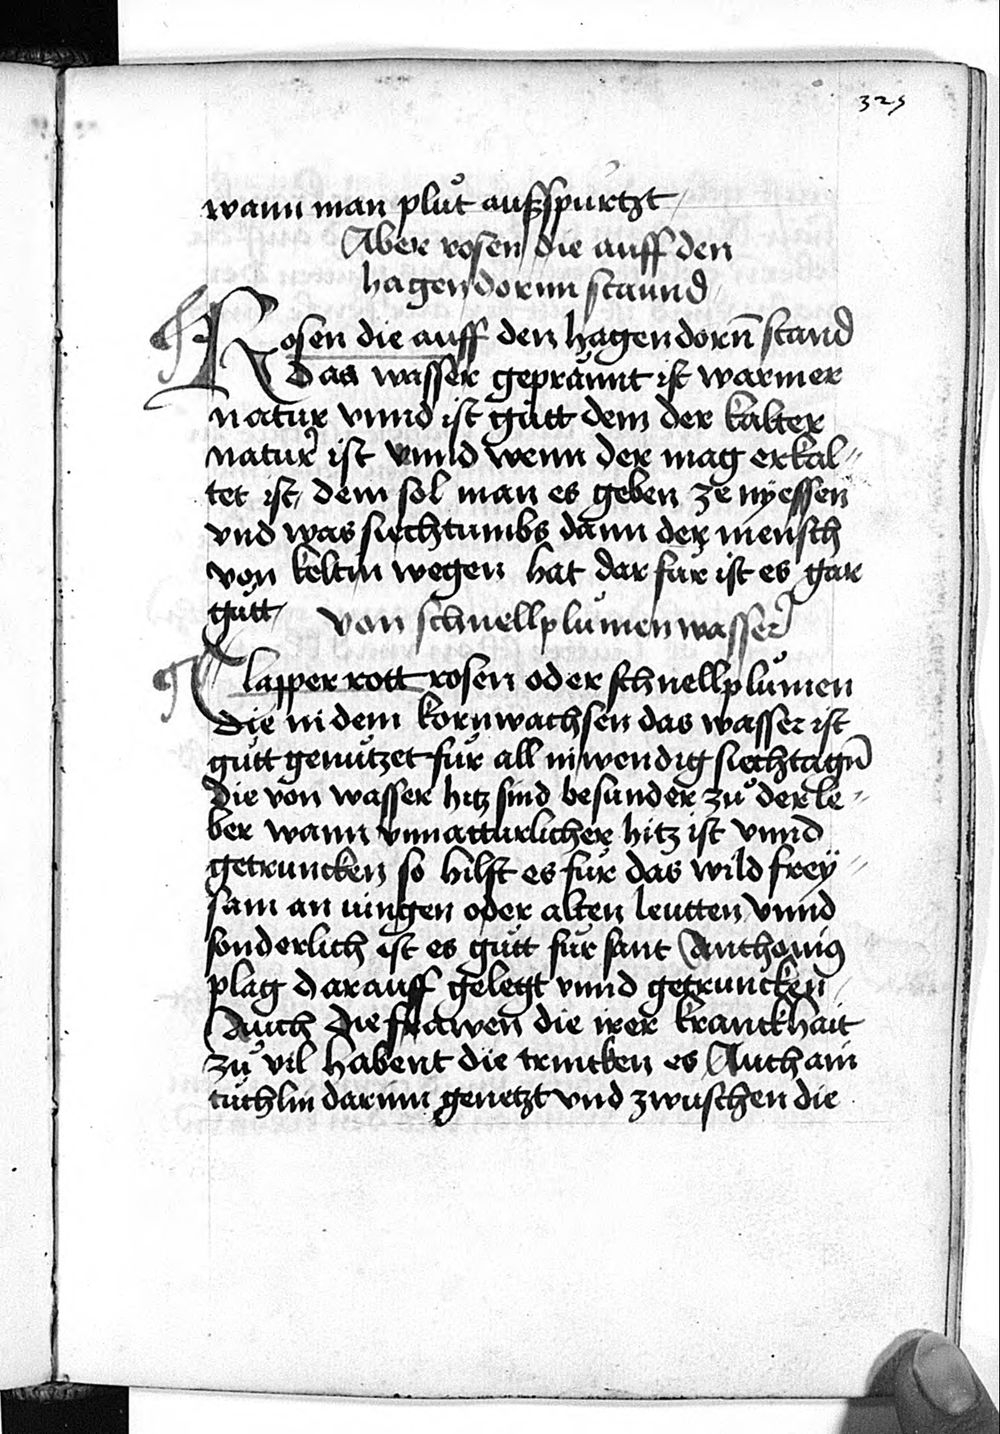 325
wann man plůt außspurtzt
Aber rosen die auff den
hagendornn stannd
Rosen die auff den hagendorn̄ stand
Das wasser geprannt ist warmer
natur vnnd ist gůtt dem der kalter
natur ist vnnd wenn der mag erkal-
tet ist, dem sol man es geben ze nyessen
vnd was siechtumbs dann der mensch
von keltin wegen hat dar für ist es gar
gůtt von schnellplůmen wasser
Klapper rott rosen oder schnellplůmen
die in dem korn wachsen das wasser ist
gůtt genützet für all inwendig siechtagn̄
die von wasser hitz sind besunder zů der le-
ber wann vnnattürlicher hitz ist vnnd
getruncken so hilft es für das wild frey-
sam an iungen oder alten leutten vnnd
sonderlich ist es gůtt für sant Anthonius
plag darauff gelegt vnnd getruncken
Auch die frawen die irer kranckhait
zů vil habent die trincken es Auch ain
tüchlin darinn genetzt vnd zwuschen die